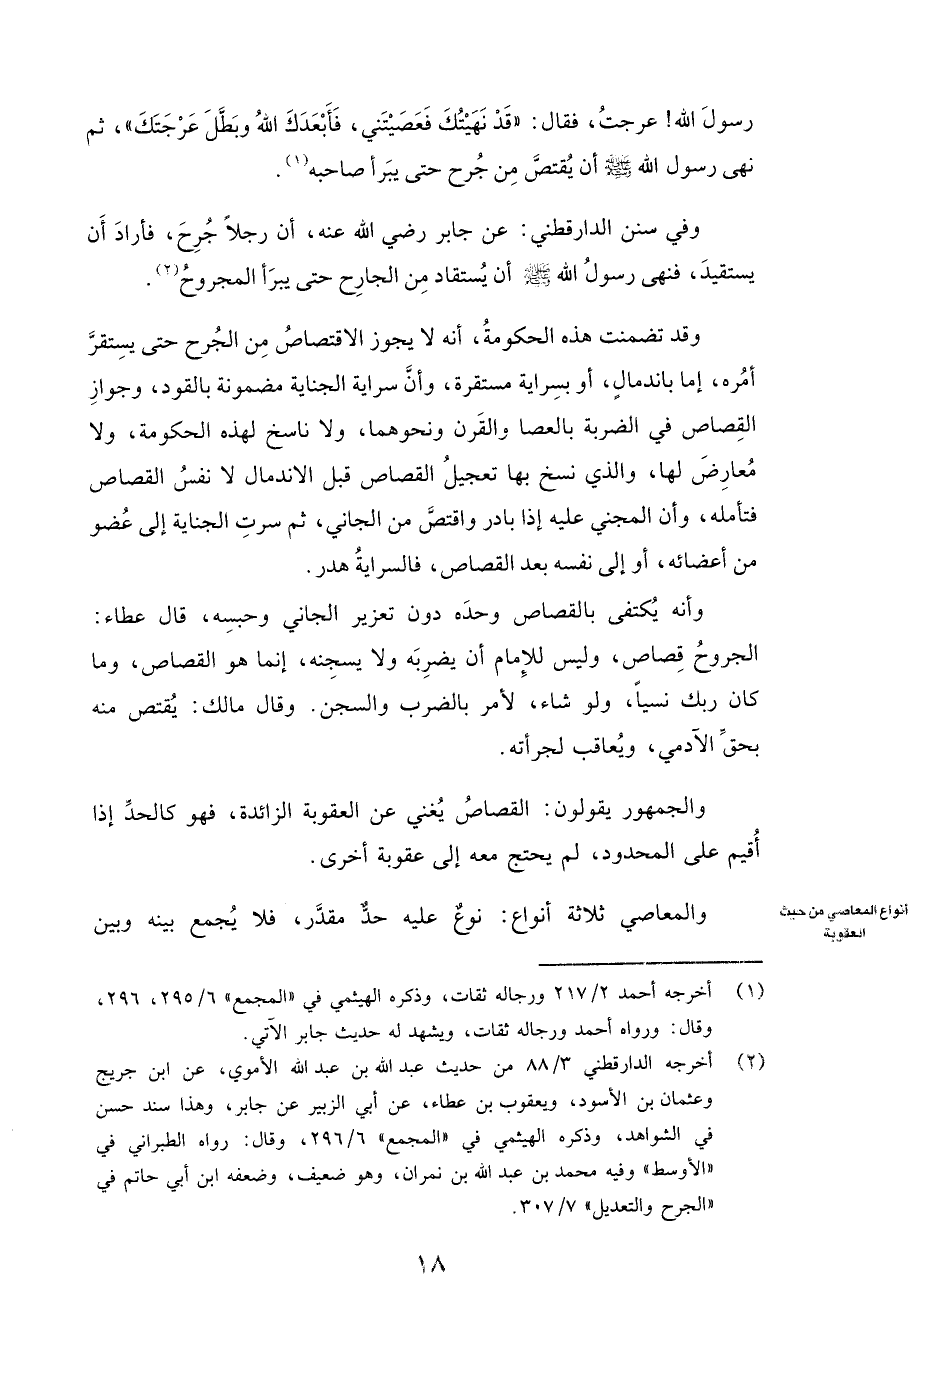 رسولَ الله! عرجتُ، فقال: «قَدْ نَهَيْتُكَ فَعَصَيْتَني، فَأَبْعَدَكَ اللهُ وبَطَّلَ عَرْجَتَكَ»، ثم
نهى رسول الله ﷺ أن يُقتصَّ مِن جُرح حتى يبَرأ صاحبه(١).
وفي سنن الدارقطني: عن جابر رضي الله عنه، أن رجلاً جُرِحَ، فأرادَ أَن
يستقيدَ، فنهى رسولُ الله ﷺ أن يُستقاد مِن الجارِح حتى يبرَأ المجروحُ(٢).
وقد تضمنت هذه الحكومةُ، أنه لا يجوز الاقتصاصُ مِن الجُرح حتى يستِقرَّ
أمُره، إما باندمالٍ، أو بسِراية مستقرة، وأنَّ سراية الجناية مضمونة بالقود، وجوازِ
القِصاص في الضربة بالعصا والقَرن ونحوهما، ولا ناسخ لهذه الحكومة، ولا
مُعارِضَ لها، والذي نسخ بها تعجيلُ القصاص قبل الاندمال لا نفسُ القصاص
فتأمله، وأن المجني عليه إذا بادر واقتصَّ من الجاني، ثم سرتِ الجناية إلى عُضو
من أعضائه، أو إلى نفسه بعد القصاص، فالسرايةُ هدر.
وأنه يُكتفى بالقصاص وحدَه دون تعزير الجاني وحبسِه، قال عطاء:
الجروحُ قِصاص، وليس للإِمام أن يضرِبَه ولا يسجِنه، إنما هو القصاص، وما
كان ربك نسياً، ولو شاء، لأمر بالضرب والسجن. وقال مالك: يُقتص منه
بحقِّ الآدمي، ويُعاقب لجرأته.
والجمهور يقولون: القصاصُ يُغني عن العقوبة الزائدة، فهو كالحدِّ إذا
أُقيم على المحدود، لم يحتج معه إلى عقوبة أخرى.
والمعاصي ثلاثة أنواع: نوعٌ عليه حدٌّ مقدَّر، فلا يُجمع بينه وبين
أنواع المعاصي من حيث
العقوبة
(١) أخرجه أحمد ٢١٧/٢ ورجاله ثقات، وذكره الهيثمي في «المجمع» ٢٩٥/٦، ٢٩٦،
وقال: ورواه أحمد ورجاله ثقات، ويشهد له حديث جابر الآتي.
(٢) أخرجه الدارقطني ٨٨/٣ من حديث عبد الله بن عبد الله الأموي، عن ابن جريج
وعثمان بن الأسود، ويعقوب بن عطاء، عن أبي الزبير عن جابر، وهذا سند حسن
في الشواهد، وذكره الهيثمي في «المجمع» ٢٩٦/٦، وقال: رواه الطبراني في
«الأوسط» وفيه محمد بن عبد الله بن نمران، وهو ضعيف، وضعفه ابن أبي حاتم في
«الجرح والتعديل» ٣٠٧/٧.
١٨